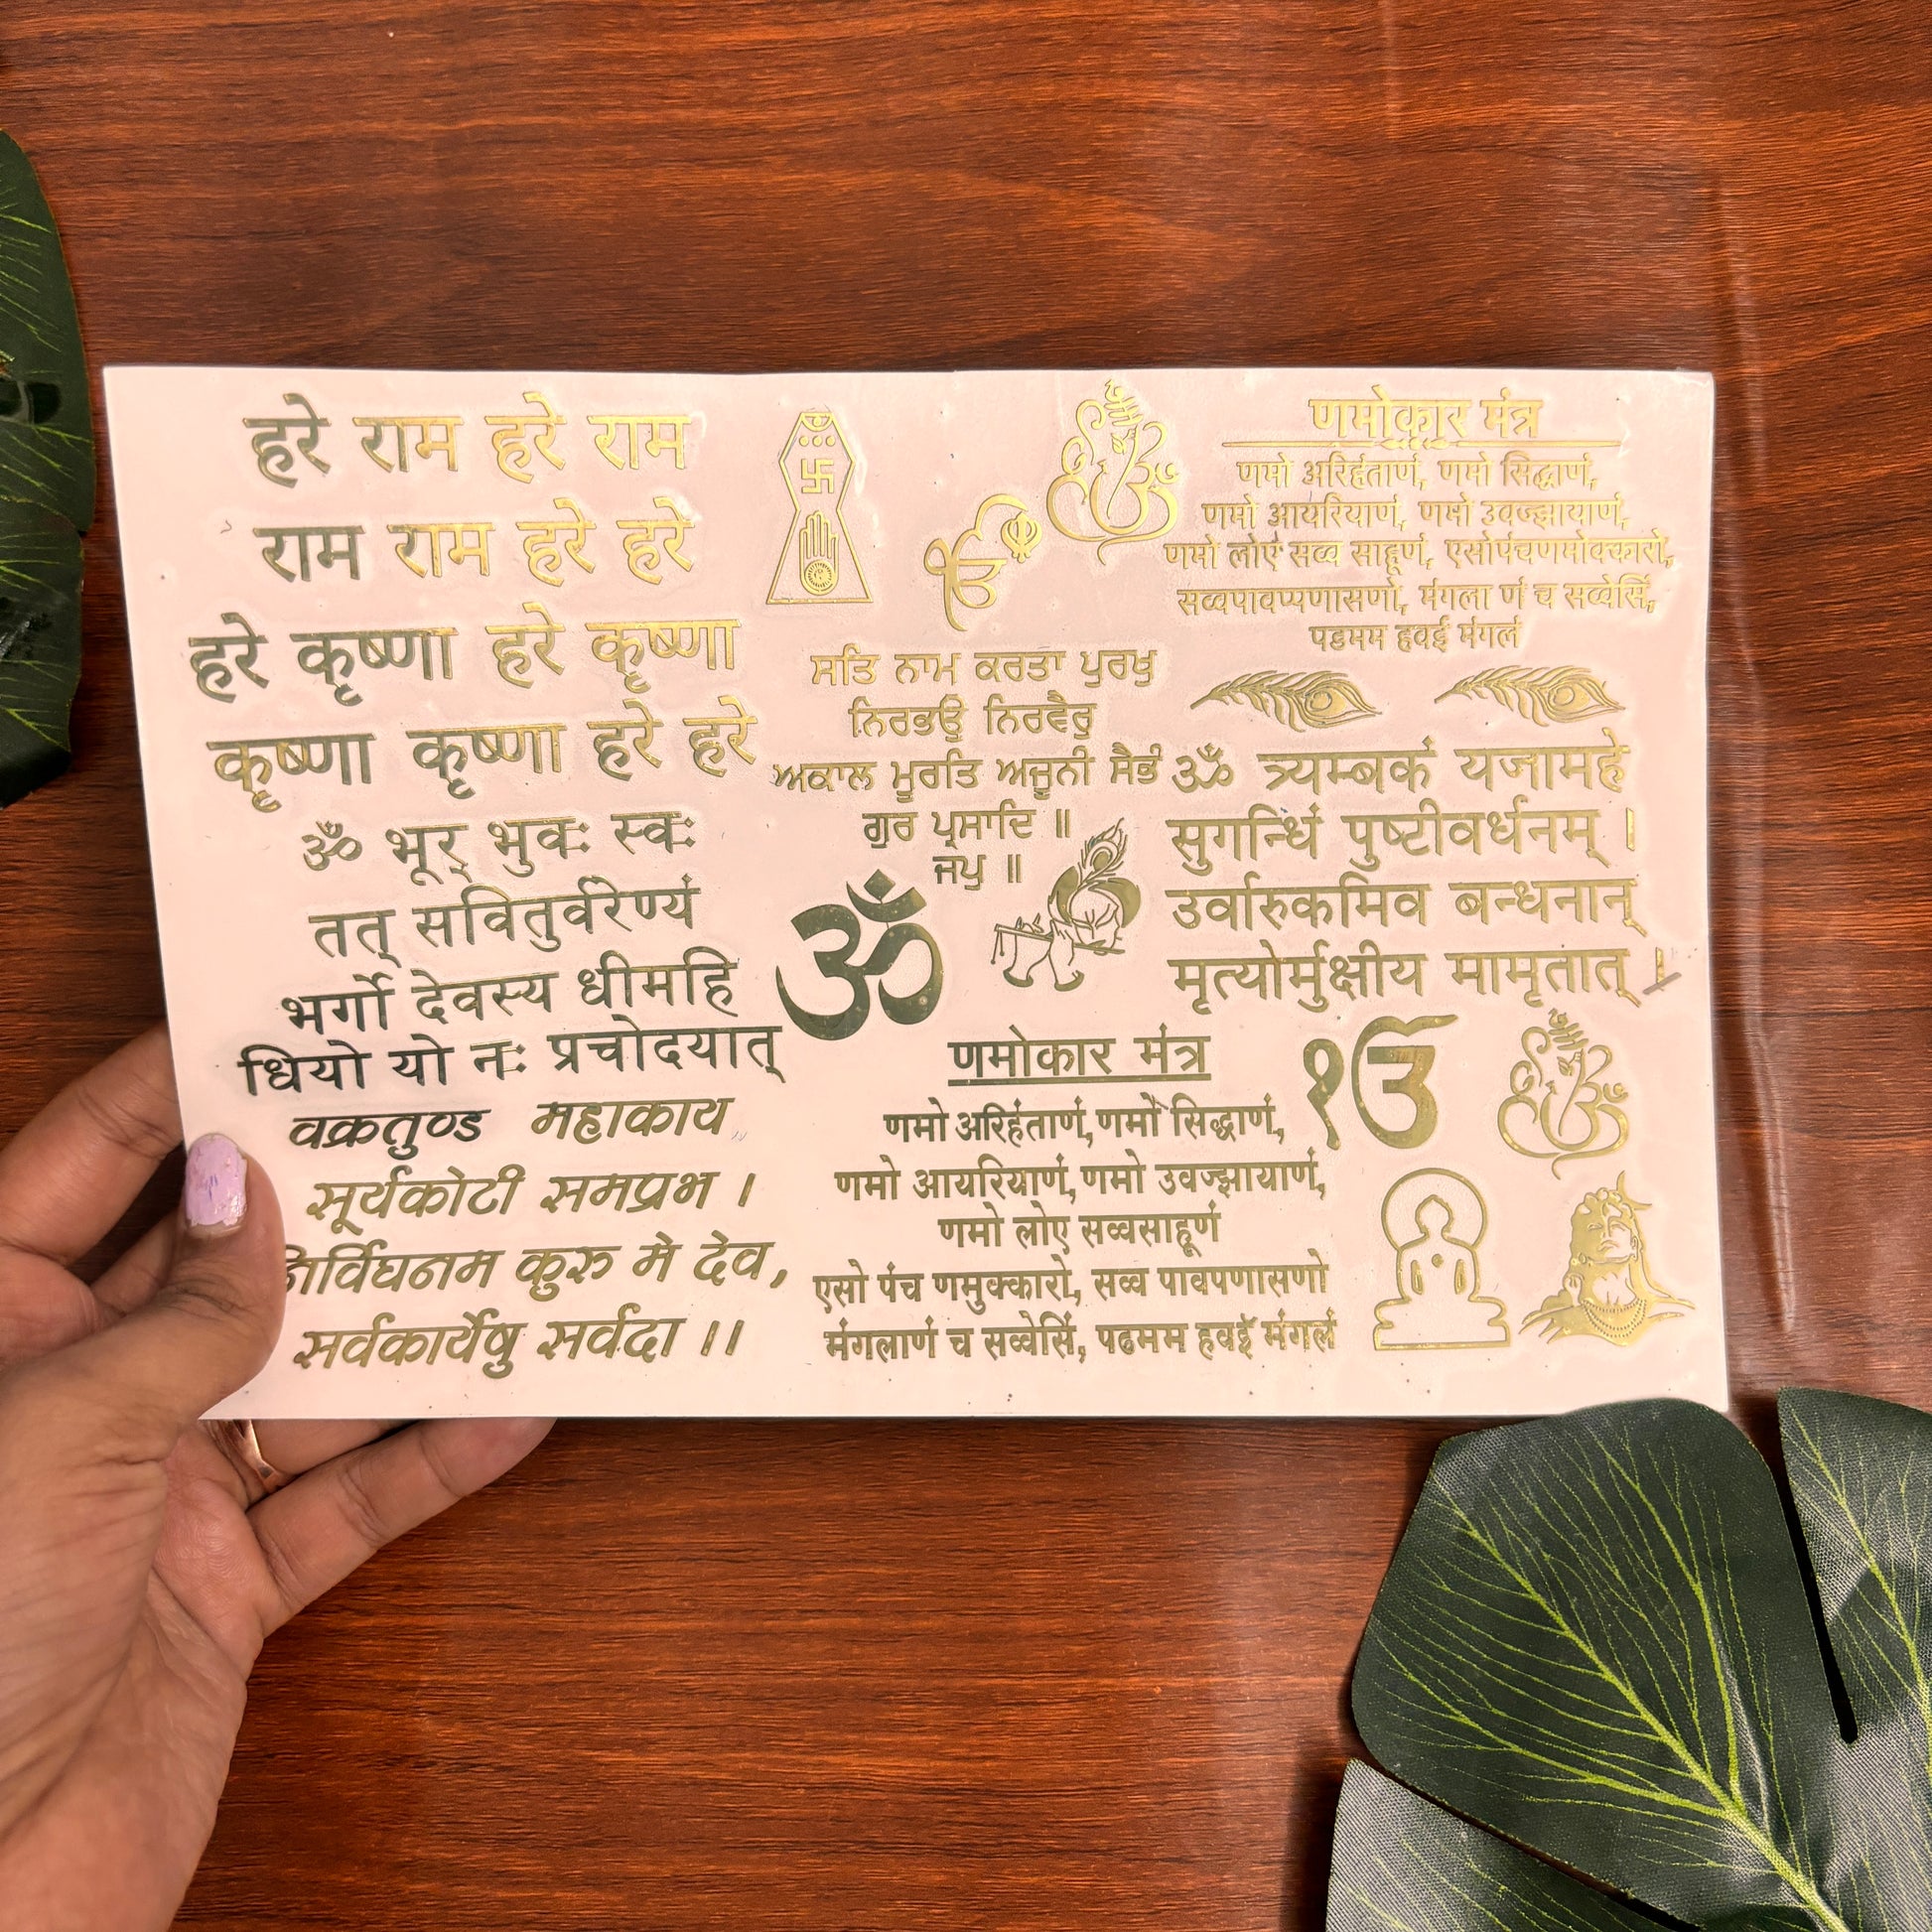 हरे राम हरे राम
राम राम हरे हरे
हरे कृष्णा हरे कृष्णा
कृष्णा कृष्णा हरे हरे
ॐ भूर् भुवः स्वः
तत् सवितुर्वरेण्यं
भर्गो देवस्य धीमहि
धियो यो नः प्रचोदयात्
वक्रतुण्ड महाकाय
सूर्यकोटी समप्रभ ।
निर्विघनम कुरु मे देव,
सर्वकार्येषु सर्वदा ।।
ੴ
ਸਤਿ ਨਾਮ ਕਰਤਾ ਪੁਰਖੁ
ਨਿਰਭਉ ਨਿਰਵੈਰੁ
ਅਕਾਲ ਮੂਰਤਿ ਅਜੂਨੀ ਸੈਭੰ
ਗੁਰ ਪ੍ਰਸਾਦਿ ॥
ਜਪੁ ॥
ॐ
णमोकार मंत्र
णमो अरिहंताणं, णमो सिद्धाणं,
णमो आयरियाणं, णमो उवज्झायाणं,
णमो लोए सव्वसाहूणं
एसो पंच णमुक्कारो, सव्व पावपणासणो
मंगलाणं च सव्वेसिं, पढमम हवइ मंगलं
णमोकार मंत्र
णमो अरिहंताणं, णमो सिद्धाणं,
णमो आयरियाणं, णमो उवज्झायाणं,
णमो लोएं सव्व साहूणं, एसोपंचणमोक्कारो,
सव्वपावप्पणासणो, मंगला णं च सव्वेसिं,
पडमम हवई मंगलं
ॐ त्र्यम्बकं यजामहे
सुगन्धिं पुष्टीवर्धनम् ।
उर्वारुकमिव बन्धनान्
मृत्योर्मुक्षीय मामृतात् ।
ੴ